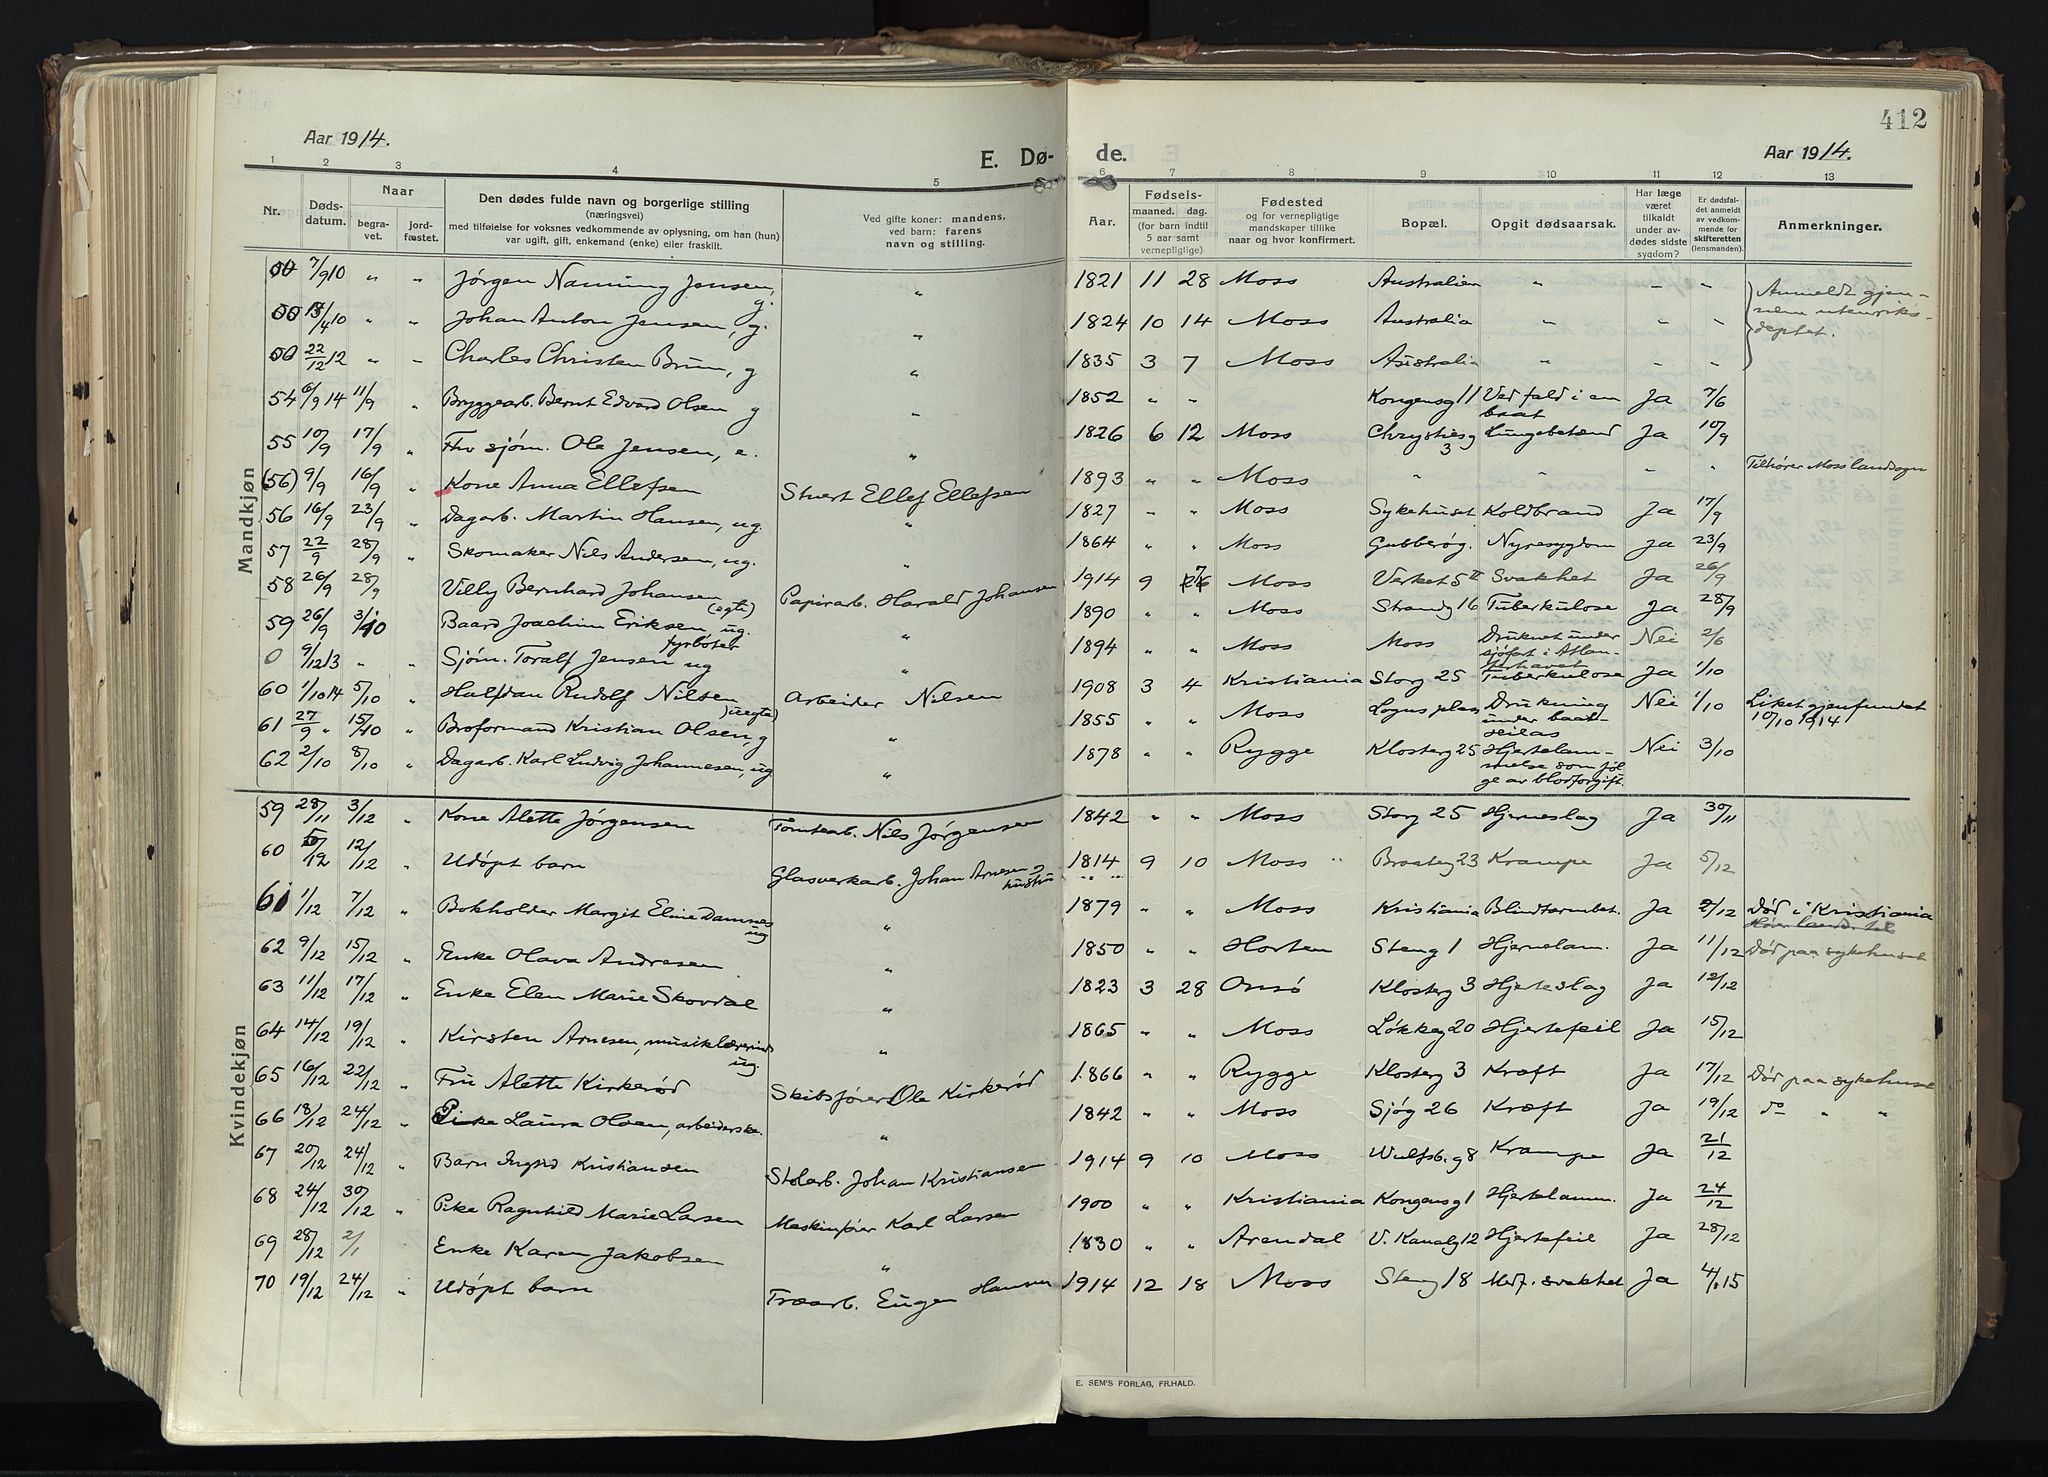 412
Aar 1914.
E. Dø-
de.
Aar 1914.
1 2 3 4 5 6 7 8 9 10 11 12 13
Nr.
Døds-
datum.
Naar
begra-
vet.
jord-
fæstet.
Den dødes fulde navn og borgerlige stilling
(næringsvei)
med tilføielse for voksnes vedkommende av oplysning, om han (hun)
var ugift, gift, enkemand (enke) eller fraskilt.
Ved gifte koner: mandens.
ved barn: farens
navn og stilling.
Aar.
Fødsels-
maaned. dag.
(for barn indtil
5 aar samt
vernepligtige)
Fødested
og for vernepligtige
mandskaper tillike
naar og hvor konfirmert.
Bopæl.
Opgit dødsaarsak.
Har læge
været
tilkaldt
under av-
dødes sidste
sygdom?
Er dødsfal-
det anmeldt
av vedkom-
mende for
skifteretten
(lensmanden).
Anmerkninger.
Mandkjøn
00 7/9 10 " " Jørgen Nanning Jensen, g. " 1821 11 28 Moss Australien " - - Anmeldt gjen-
nem utenriks-
deptet.
00 13/4 10 " " Johan Anton Jensen, g. " 1824 10 14 Moss Australia " - "
00 22/12 12 " - Charles Christen Brun, g " 1835 3 7 Moss Australia " - -
54 6/9 14 11/9 " Bryggearb. Bernt Edvard Olsen g " 1852 " - Kongensg 11 Ved fald i en
baat Ja 7/6
55 10/9 17/9 " Fhv sjøm. Ole Jensen, e. " 1826 6 12 Moss Chrystiesg
3 Lungebetænd Ja 10/9
(56) 9/9 16/9 " Kone Anna Ellefsen Stuert Ellef Ellefsen 1893 " " Moss " " " " Tilhører Moss landsogn
56 16/9 23/9 " Dagarb. Martin Hansen, ug. " 1827 - " Moss Sykehuset Koldbrand Ja 17/9
57 22/9 28/9 " Skomaker Nils Andersen, ug. " 1864 " " Moss Gubberøg. Nyresygdom Ja 23/9
58 26/9 28/9 " Villy Bernhard Johansen (egte) Papirarb. Harald Johansen 1914 9 Moss Verket 5 II Svakhet Ja 26/9
59 26/9 3/10 " Baard Joachim Eriksen ug.
fyrbøter " 1890 " " Moss Strandg 16 Tuberkulose Ja 28/9
0 9/12 13 " " Sjøm. Toralf Jensen ug " 1894 " " Moss Moss Druknet under
sjøfart i Atlan-
terhavet Nei 2/6
60 1/10 14 5/10 " Halfdan Rudolf Nilsen (uegte) Arbeider Nilsen 1908 3 4 Kristiania Storg 25 Tuberkulose Ja 1/10
61 27/9 " 15/10 " Broformand Kristian Olsen, g " 1855 " " Moss Logns plas Drukning
under baat-
seilas Nei 1/10 Liket gjenfundet
10/10 1914
62 2/10 8/10 " Dagarb. Karl Ludvig Johannesen, ug " 1878 " " Rygge Klosterg 25 Hjertelam-
melse som føl
ge av blodforgift. Nei 3/10
Kvindekjøn
59 28/11 3/12 " Kone Alette Jørgensen Tomtearb. Nils Jørgensen 1842 " " Moss Storg 25 Hjerneslag Ja 30/11
60 5/12 12/12 " Udøpt barn Glasverkarb. Johan Arnesen &
hustru 1814 9 10 Moss " Braateg 23 Krampe Ja 5/12
61 1/12 7/12 " Bokholder Margit Eline Damnes
ug " 1879 " " Moss Kristiania Blindtarmbet. Ja 2/12 Død i Kristiania
62 9/12 15/12 " Enke Olava Andresen " 1850 " " Horten Steng 1 Hjernelam. Ja 11/12 Død paa sykehuset
63 11/12 17/12 " Enke Elen Marie Skovdal " 1823 3 28 Onsø Klosterg 3 Hjerteslag Ja 12/12
64 14/12 19/12 " Kirsten Arnesen, musiklærerind
ug. " 1865 " " Moss Løkkeg 20 Hjertefeil Ja 15/12
65 16/12 22/12 " Fru Alette Kirkerød Skibsfører Ole Kirkerød 1866 " " Rygge Klosterg 3 Kræft Ja 17/12 Død paa sykehuset
66 18/12 24/12 " Pike Laura Olsen, arbeiderske. " 1842 " " Moss Sjøg 26 Kræft Ja 19/12 do " "
67 20/12 24/12 " Barn Ingrid Kristiansen Stolarb. Johan Kristiansen 1914 9 10 Moss Wulfsb. g 8 Krampe Ja 21/12
68 24/12 30/12 " Pike Ragnhild Marie Larsen Maskinfører Karl Larsen 1900 " " Kristiania Kongensg 1 Hjertelamm. Ja 24/12
69 28/12 2/1 " Enke Karen Jakobsen " 1830 " " Arendal V. Kanalg 12 Hjertefeil Ja 28/12
70 19/12 24/12 " Udøpt barn Træarb. Eugen Hansen 1914 12 18 Moss Steng 18 Medf. svakhet Ja 4/1 15
E. SEM'S FORLAG, FR.HALD.